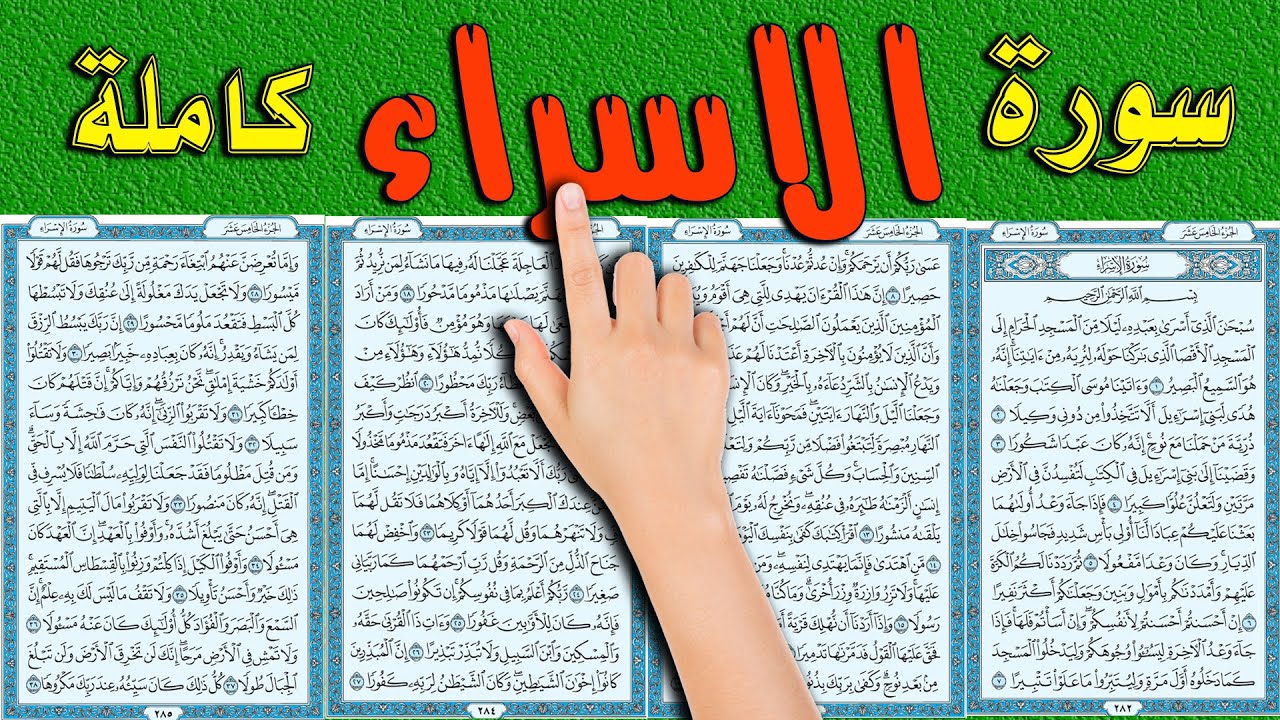 سورة الاسراء كاملة
الجزء الخامس عشر سورة الإسراء
سورة الإسراء
بسم الله الرحمن الرحيم
سبحن الذي أسرى بعبده ليلا من المسجد الحرام إلى
المسجد الأقصا الذي بركنا حوله لنريه من ءايتنا إنه
هو السميع البصير ١ وءاتينا موسى الكتب وجعلنه
هدى لبني إسرءيل ألا تتخذوا من دوني وكيلا ٢
ذرية من حملنا مع نوح إنه كان عبدا شكورا ٣
وقضينا إلى بني إسرءيل في الكتب لتفسدن في الأرض
مرتين ولتعلن علوا كبيرا ٤ فإذا جاء وعد أولىهما
بعثنا عليكم عبادا لنا أولي بأس شديد فجاسوا خلل
الديار وكان وعدا مفعولا ٥ ثم رددنا لكم الكرة
عليهم وأمددنكم بأمول وبنين وجعلنكم أكثر نفيرا
٦ إن أحسنتم أحسنتم لأنفسكم وإن أسأتم فلها فإذا
جاء وعد الأخرة ليسـوا وجوهكم وليدخلوا المسجد
كما دخلوه أول مرة وليتبروا ما علوا تتبيرا ٧
٢٨٢
الجزء الخامس عشر سورة الإسراء
عسى ربكم أن يرحمكم وإن عدتم عدنا وجعلنا جهنم للكفرين
حصيرا ٨ إن هذا القرءان يهدي للتي هي أقوم
المؤمنين الذين يعملون الصلحت أن لهم
وأن الذين لا يؤمنون بالأخرة أعتدنا لهم
ويدع الإنسن بالشر دعاءه بالخير وكان الإنسن
وجعلنا اليل والنهار ءايتين فمحونا ءاية اليل
النهار مبصرة لتبتغوا فضلا من ربكم
السنين والحساب وكل شيء فصلنه
إنسن ألزمنه طئره في عنقه ونخرج له
يلقىه منشورا ١٣ اقرأ كتبك كفى بنفسك
١٤ من اهتدى فإنما يهتدي لنفسه
عليها ولا تزر وازرة وزر أخرى
رسولا ١٥ وإذا أردنا أن نهلك قرية
فحق عليها القول فدمرنها
من بعد نوح وكفى بربك
الجزء الخامس عشر سورة الإسراء
العاجلة عجلنا له فيها ما نشاء لمن نريد ثم
يصلىها مذموما مدحورا ١٨ ومن أراد
لها وهو مؤمن فأولئك كان
كلا نمد هؤلاء وهؤلاء من
ربك محظورا ٢٠ انظر كيف
بعض وللأخرة أكبر درجت وأكبر
مع الله إلها ءاخر فتقعد مذموما مخذولا
ربك ألا تعبدوا إلا إياه وبالولدين إحسنا إما
عندك الكبر أحدهما أو كلاهما فلا تقل لهما
ولا تنهرهما وقل لهما قولا كريما ٢٣ واخفض لهما
جناح الذل من الرحمة وقل رب ارحمهما كما ربياني
صغيرا ٢٤ ربكم أعلم بما في نفوسكم إن تكونوا صلحين
فإنه كان للأوبين غفورا ٢٥ وءات ذا القربى حقه
والمسكين وابن السبيل ولا تبذر تبذيرا ٢٦ إن المبذرين
كانوا إخون الشيطين وكان الشيطن لربه كفورا ٢٧
٢٨٤
الجزء الخامس عشر سورة الإسراء
وإما تعرضن عنهم ابتغاء رحمة من ربك ترجوها فقل لهم قولا
ميسورا ٢٨ ولا تجعل يدك مغلولة إلى عنقك ولا تبسطها
كل البسط فتقعد ملوما محسورا ٢٩ إن ربك يبسط الرزق
لمن يشاء ويقدر إنه كان بعباده خبيرا بصيرا ٣٠ ولا تقتلوا
أولدكم خشية إملق نحن نرزقهم وإياكم إن قتلهم كان
خطـا كبيرا ٣١ ولا تقربوا الزنى إنه كان فحشة وساء
سبيلا ٣٢ ولا تقتلوا النفس التي حرم الله إلا بالحق
ومن قتل مظلوما فقد جعلنا لوليه سلطنا فلا يسرف في
القتل إنه كان منصورا ٣٣ ولا تقربوا مال اليتيم إلا بالتي
هي أحسن حتى يبلغ أشده وأوفوا بالعهد إن العهد كان
مسـولا ٣٤ وأوفوا الكيل إذا كلتم وزنوا بالقسطاس المستقيم
ذلك خير وأحسن تأويلا ٣٥ ولا تقف ما ليس لك به علم إن
السمع والبصر والفؤاد كل أولئك كان عنه مسـولا ٣٦
ولا تمش في الأرض مرحا إنك لن تخرق الأرض ولن تبلغ
الجبال طولا ٣٧ كل ذلك كان سيئه عند ربك مكروها ٣٨
٢٨٥